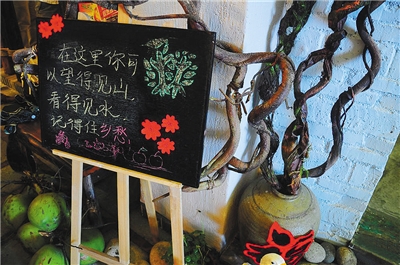 在这里你可
以望得见山，
看得见水，
记得住乡愁